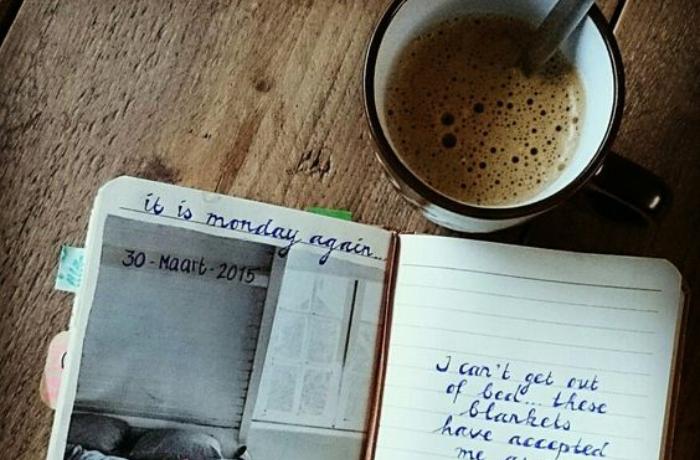 it is monday again...
30-Maart-2015
I can't get out
of bed... these
blankets
have accepted
me